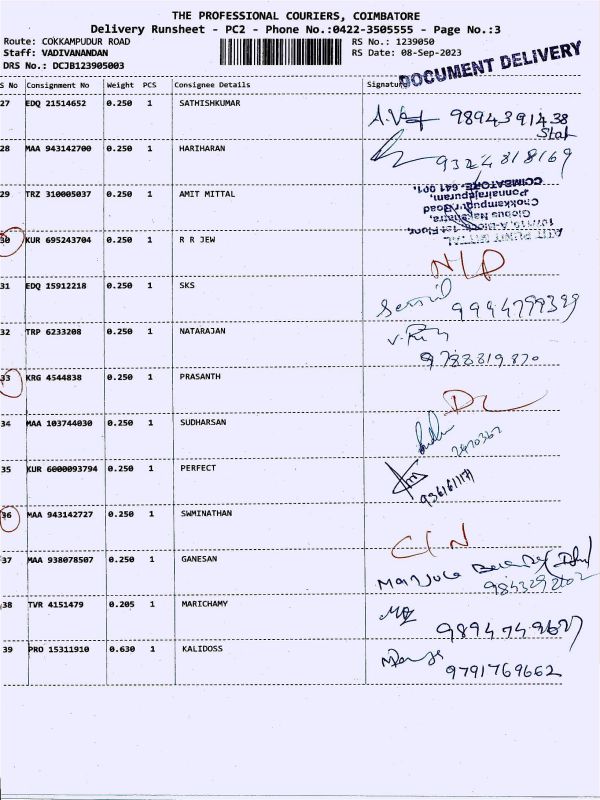 THE PROFESSIONAL COURIERS, COIMBATORE
Delivery Runsheet - PC2 - Phone No.:0422-3505555 - Page No.:3
Route: COKKAMPUDUR ROAD RS No.: 1239050
Staff: VADIVANANDAN RS Date: 08-Sep-2023
DRS No.: DCJB123905003
DOCUMENT DELIVERY
S No Consignment No Weight PCS Consignee Details Signature
27 EDQ 21514652 0.250 1 SATHISHKUMAR
9894391438
28 MAA 943142700 0.250 1 HARIHARAN
9324818169
29 TRZ 310005037 0.250 1 AMIT MITTAL
Globus Nakshatra,
Chokkampudur Road
Ponnairajapuram,
COIMBATORE-641 001.
30 KUR 695243704 0.250 1 R R JEW
N/D
31 EDQ 15912218 0.250 1 SKS
9994799399
32 TRP 6233208 0.250 1 NATARAJAN
9788819870
33 KRG 4544838 0.250 1 PRASANTH
DL
34 MAA 103744030 0.250 1 SUDHARSAN
35 KUR 6000093794 0.250 1 PERFECT
36 MAA 943142727 0.250 1 SWMINATHAN
C/N
37 MAA 938078507 0.250 1 GANESAN
Manjula
9843292202
38 TVR 4151479 0.205 1 MARICHAMY
9894749627
39 PRO 15311910 0.630 1 KALIDOSS
9791769662